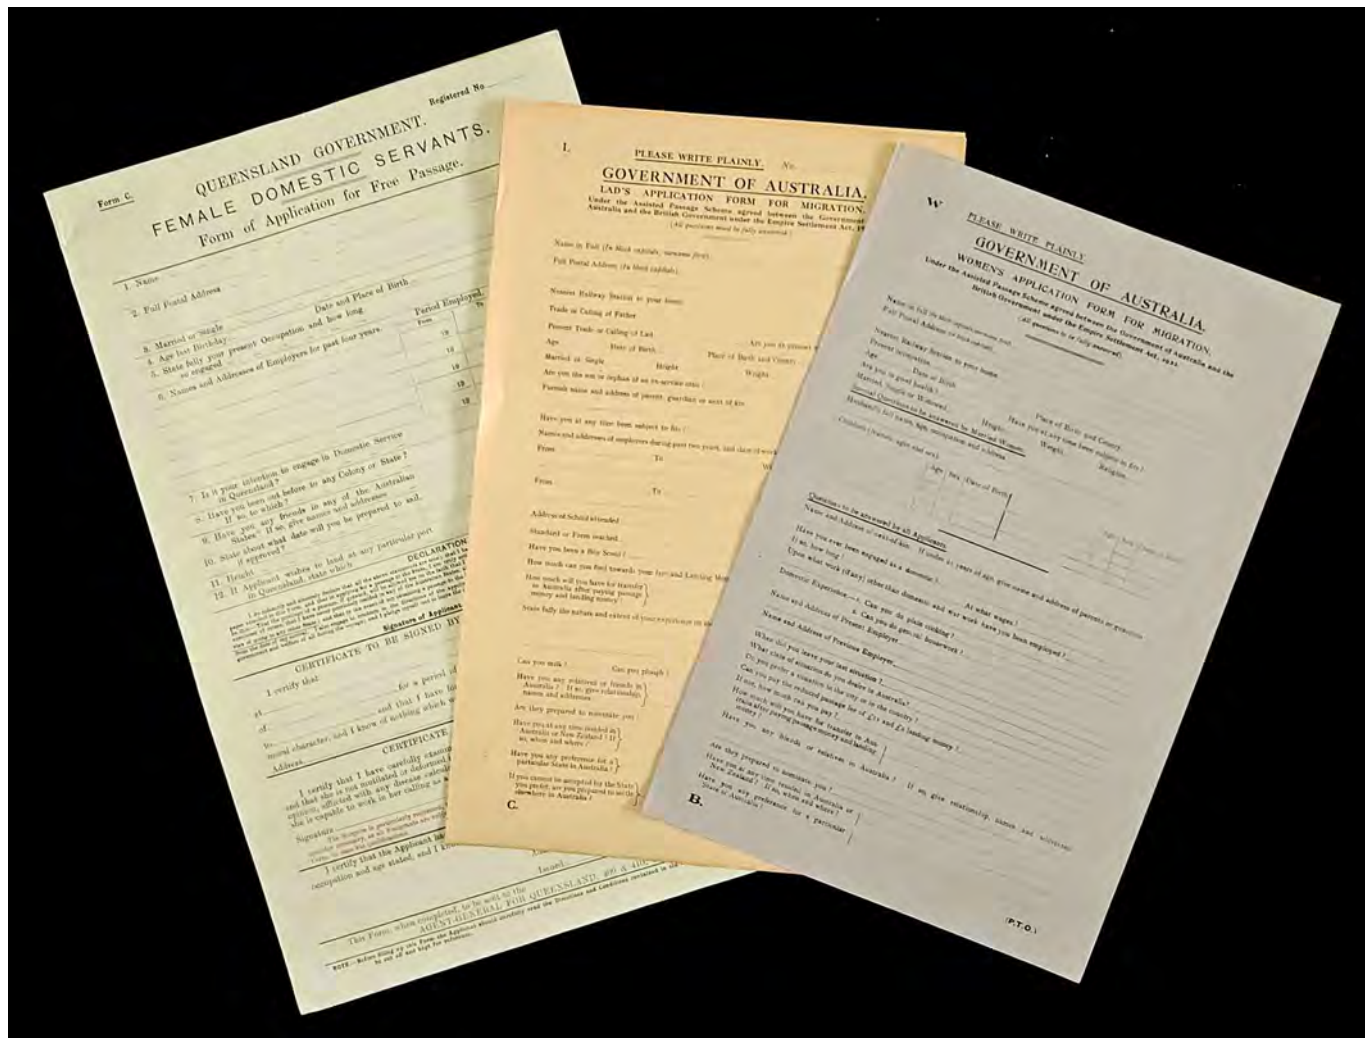 Registered No
Form C.
QUEENSLAND GOVERNMENT.
FEMALE DOMESTIC SERVANTS.
Form of Application for Free Passage.
1. Name
2. Full Postal Address
3. Married or Single
Date and Place of Birth
4. Age last Birthday
5. State fully your present Occupation and how long
so engaged
6. Names and Addresses of Employers for past four years.
Period Employed.
From
To
19
19
19
19
7. Is it your intention to engage in Domestic Service
in Queensland ?
8. Have you been out before to any Colony or State ?
If so, to which ?
9. Have you any friends in any of the Australian
States? If so, give names and addresses
10. State about what date will you be prepared to sail,
if approved ?
11. Height
12. If Applicant wishes to land at any particular port
in Queensland, state which
DECLARATION
Signature of Applicant
CERTIFICATE TO BE SIGNED BY
I certify that
at
for a period of
of
and that I have
to
moral character, and I know of nothing which
Address
CERTIFICATE
I certify that I have carefully
and that she is not mutilated or deformed
opinion, afflicted with any disease
she is capable to work in her calling as
Signature
I certify that the Applicant
occupation and age stated, and I
Issued
This Form, when completed, to be sent to the
AGENT-GENERAL FOR QUEENSLAND, 409 & 410,
NOTE.—Before filling up this Form the Applicant should carefully read the Directions and Conditions contained in
to cut off and kept for reference.
PLEASE WRITE PLAINLY.
No.
GOVERNMENT OF AUSTRALIA.
LAD'S APPLICATION FORM FOR MIGRATION.
Under the Assisted Passage Scheme agreed between the Government
Australia and the British Government under the Empire Settlement Act, 19
(All questions must be fully answered)
Name in Full (In block capitals, surname first)
Full Postal Address (In block capitals)
Nearest Railway Station to your home
Trade or Calling of Father
Present Trade or Calling of Lad
Are you at present
Age
Date of Birth
Place of Birth and County
Married or Single
Height
Weight
Are you the son or orphan of an ex-service man ?
Furnish name and address of parent, guardian or next of kin
Have you at any time been subject to fits ?
Names and addresses of employers during past two years, and class of work
From
To
From
To
Address of School attended
Standard or Form reached
Have you been a Boy Scout ?
How much can you find towards your fare and Landing
How much will you have for transfer
to Australia after paying passage
money and landing money ?
State fully the nature and extent of your experience
Can you milk ?
Can you plough ?
Have you any relatives or friends in
Australia ? If so, give relationship,
names and addresses
Are they prepared to nominate you
Have you at any time resided in
Australia or New Zealand ? If
so, when and where ?
Have you any preference for a
particular State in Australia ?
If you cannot be accepted for the State
you prefer, are you prepared to settle
elsewhere in Australia ?
C.
W
PLEASE WRITE PLAINLY
GOVERNMENT OF AUSTRALIA.
WOMEN'S APPLICATION FORM FOR MIGRATION.
Under the Assisted Passage Scheme agreed between the Government of Australia and the
British Government under the Empire Settlement Act, 1922.
(All questions to be fully answered)
Name in full (In block capitals, surname first)
Full Postal Address (In block capitals)
Nearest Railway Station to your home
Present occupation
Age
Date of Birth
Place of Birth and County
Are you in good health ?
Have you at any time been subject to fits ?
Married, Single or Widowed
Height
Weight
Religion
Special Questions to be answered by Married Women.
Husband's full name, age, occupation and address
Children (names, ages and sex)
Age
Sex
Date of Birth
Questions to be answered by all Applicants.
Name and Address of next-of-kin. If under 21 years of age, give name and address of parents or guardian
Have you ever been engaged as a domestic ?
If so, how long ?
At what wages ?
Upon what work (if any) other than domestic and war work have you been employed ?
Domestic Experience.—1. Can you do plain cooking ?
2. Can you do general housework ?
Name and Address of Present Employer
Name and Address of Previous Employer
When did you leave your last situation ?
What class of situation do you desire in Australia?
Do you prefer a situation in the city or in the country ?
Can you pay the reduced passage fee of
and £2 landing money ?
If not, how much can you pay ?
How much will you have for transfer to Aus-
tralia after paying passage money and landing
money ?
Have you any friends or relatives in Australia ? If so, give relationship, names and addresses
Are they prepared to nominate you ?
Have you at any time resided in Australia or
New Zealand ? If so, when and where ?
Have you any preference for a particular
State of Australia ?
B.
(P.T.O.)